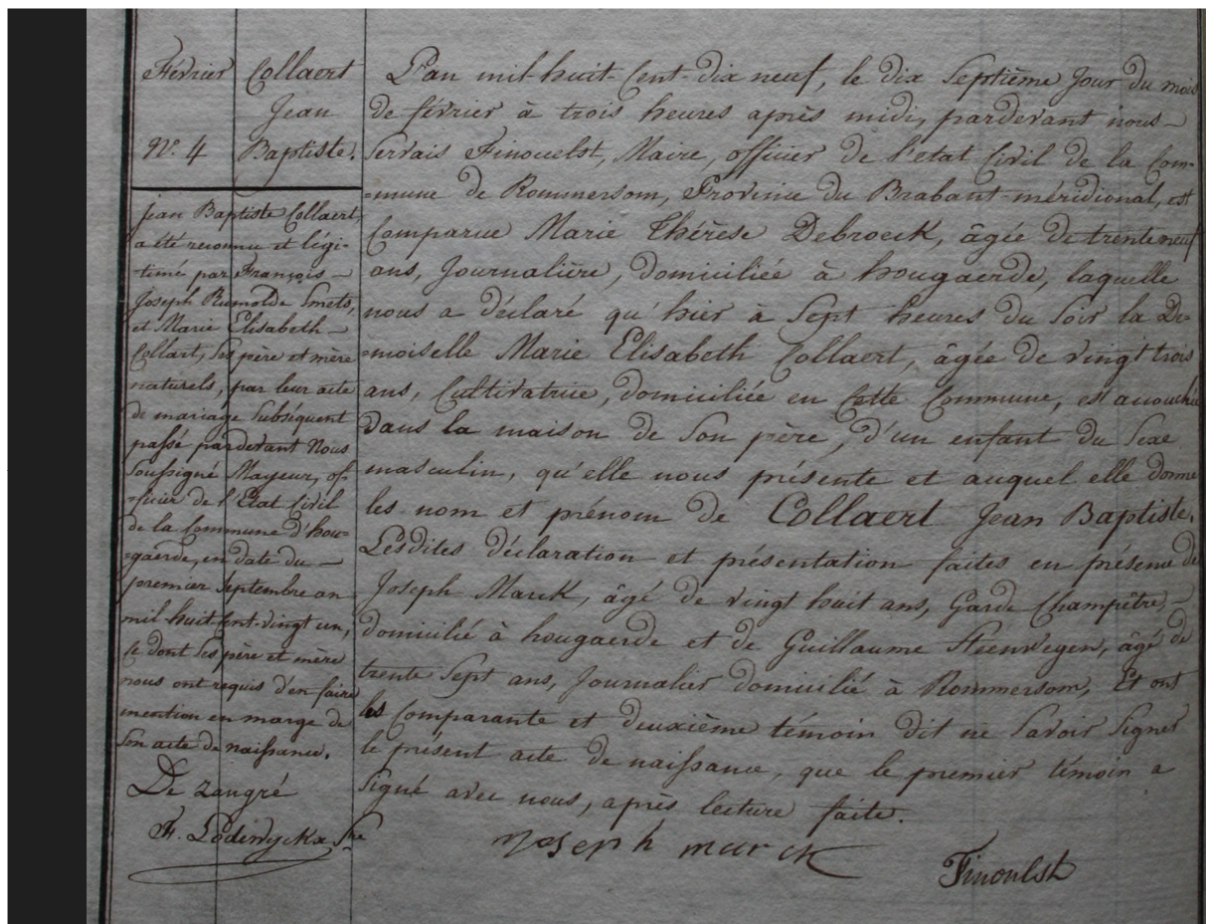 Février
N.º 4
Collaert
Jean
Baptiste.
jean Baptiste Collaert,
a été reconnu et légi-
-timé par François -
Joseph Rumolde Smets,
et Marie Elisabeth -
Collart, ses père et mère
naturels, par leur acte
de mariage subsequent
passé pardevant Nous
soussigné Mayeur, of-
-ficier de l'Etat Civil
de la Commune d'hou-
-gaerde, en date du -
premier Septembre an
mil huit cent-vingt un,
ce dont ses père et mère
nous ont requis d'en faire
mention en marge de
son acte de naissance.
De Zangré
F. Lodewyckx Sre
L'an mil-huit-Cent-dix neuf, le dix Septième Jour du mois
de février à trois heures après midi, pardevant nous -
Servais Finouelst, Maire, officier de l'etat Civil de la Com-
-mune de Rommersom, Province du Brabant-méridional, est
Comparue Marie Thérèse Debroeck, âgée de trente neuf
ans, Journalière, domiciliée à hougaerde, laquelle
nous a déclaré qu'hier à Sept heures du Soir la De-
-moiselle Marie Elisabeth Collaert, âgée de vingt trois
ans, Cultivatrice, domiciliée en Cette Commune, est accouchée
dans la maison de Son père, d'un enfant du Sexe
masculin, qu'elle nous présente et auquel elle donne
les nom et prénom de Collaert Jean Baptiste.
Lesdites déclaration et présentation faites en présence de
Joseph Marck, âgé de vingt huit ans, Garde Champêtre, -
domicilié à hougaerde et de Guillaume Steenwegen, âgé de
trente Sept ans, Journalier domicilié à Rommersom, Et ont
les Comparante et deuxième témoin dit ne Savoir Signer
le présent acte de naissance, que le premier témoin a
Signé avec nous, après lecture faite.
Joseph murck
Finoulst